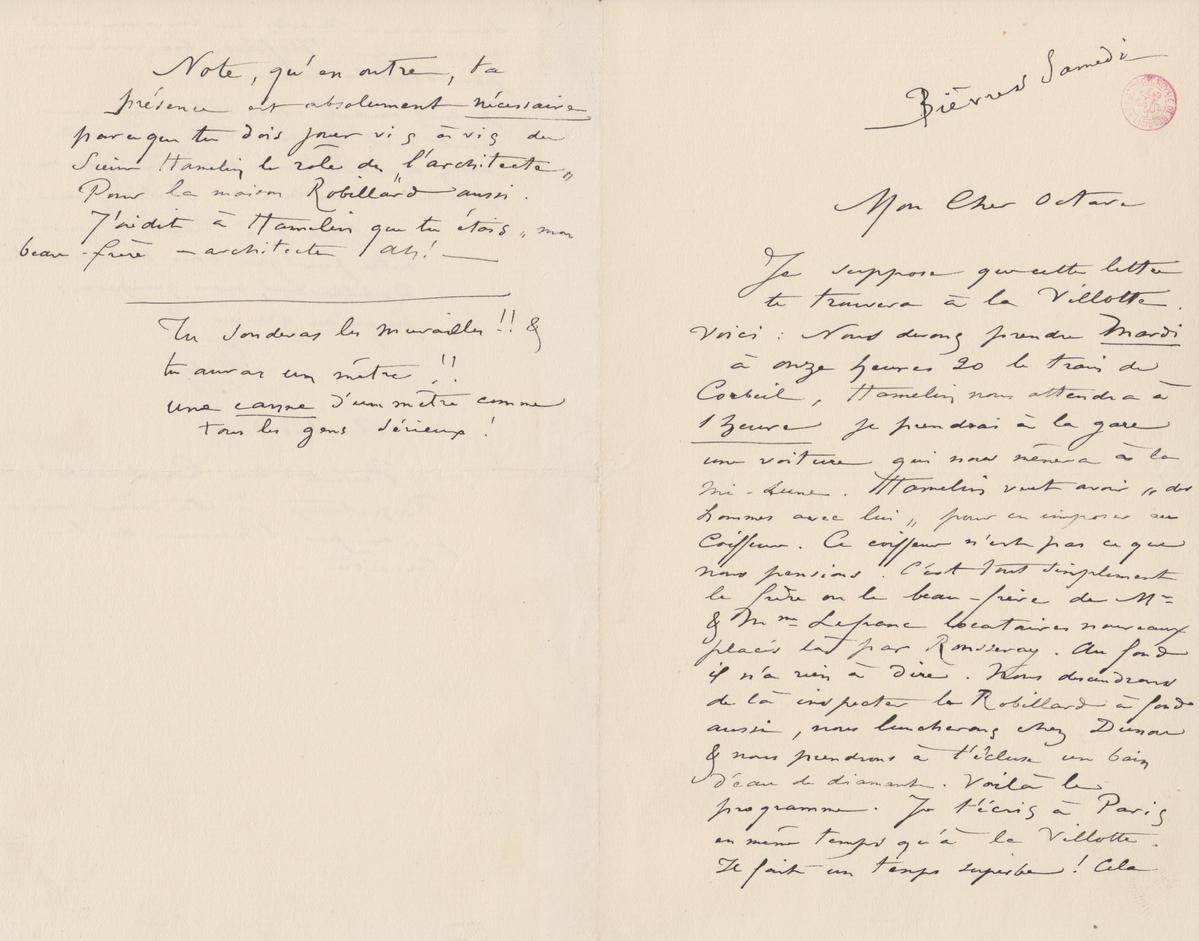 Bièvres Samedi
Mon Cher Octave
Je suppose que cette lettre
te trouvera à la Villotte.
Voici : Nous devons prendre Mardi
à onze heures 20 le train de
Corbeil, Hamelin nous attendra à
1 heure je prendrai à la gare
une voiture qui nous mènera à la
Mi-Lune. Hamelin veut avoir „des
hommes avec lui„ pour en imposer au
Coiffeur. Ce coiffeur n'est pas ce que
nous pensions. C'est tout simplement
le frère ou le beau-frère de Mr
& Mme Lefranc locataires nouveaux
placés là par Rousseray. Au fond
il n'a rien à dire. Nous descendrons
de là inspecter le Robillard à fond
aussi, nous luncherons chez
& nous prendrons à l'écluse un bain
d'eau de diamant. Voilà le
programme. Je t'écris à Paris
en même temps qu'à la Villotte.
Il fait un temps superbe ! Cela
Note, qu'en outre, ta
présence est absolument nécessaire
parce que tu dois jouer vis à vis du
Sieur Hamelin le rôle de „l'architecte„
Pour la maison Robillard aussi.
J'ai dit à Hamelin que tu étais „mon
beau-frère – architecte Ah! —
Tu sonderas les murailles !! &
tu auras un mètre !!
une canne d'un mètre comme
tous les gens sérieux !